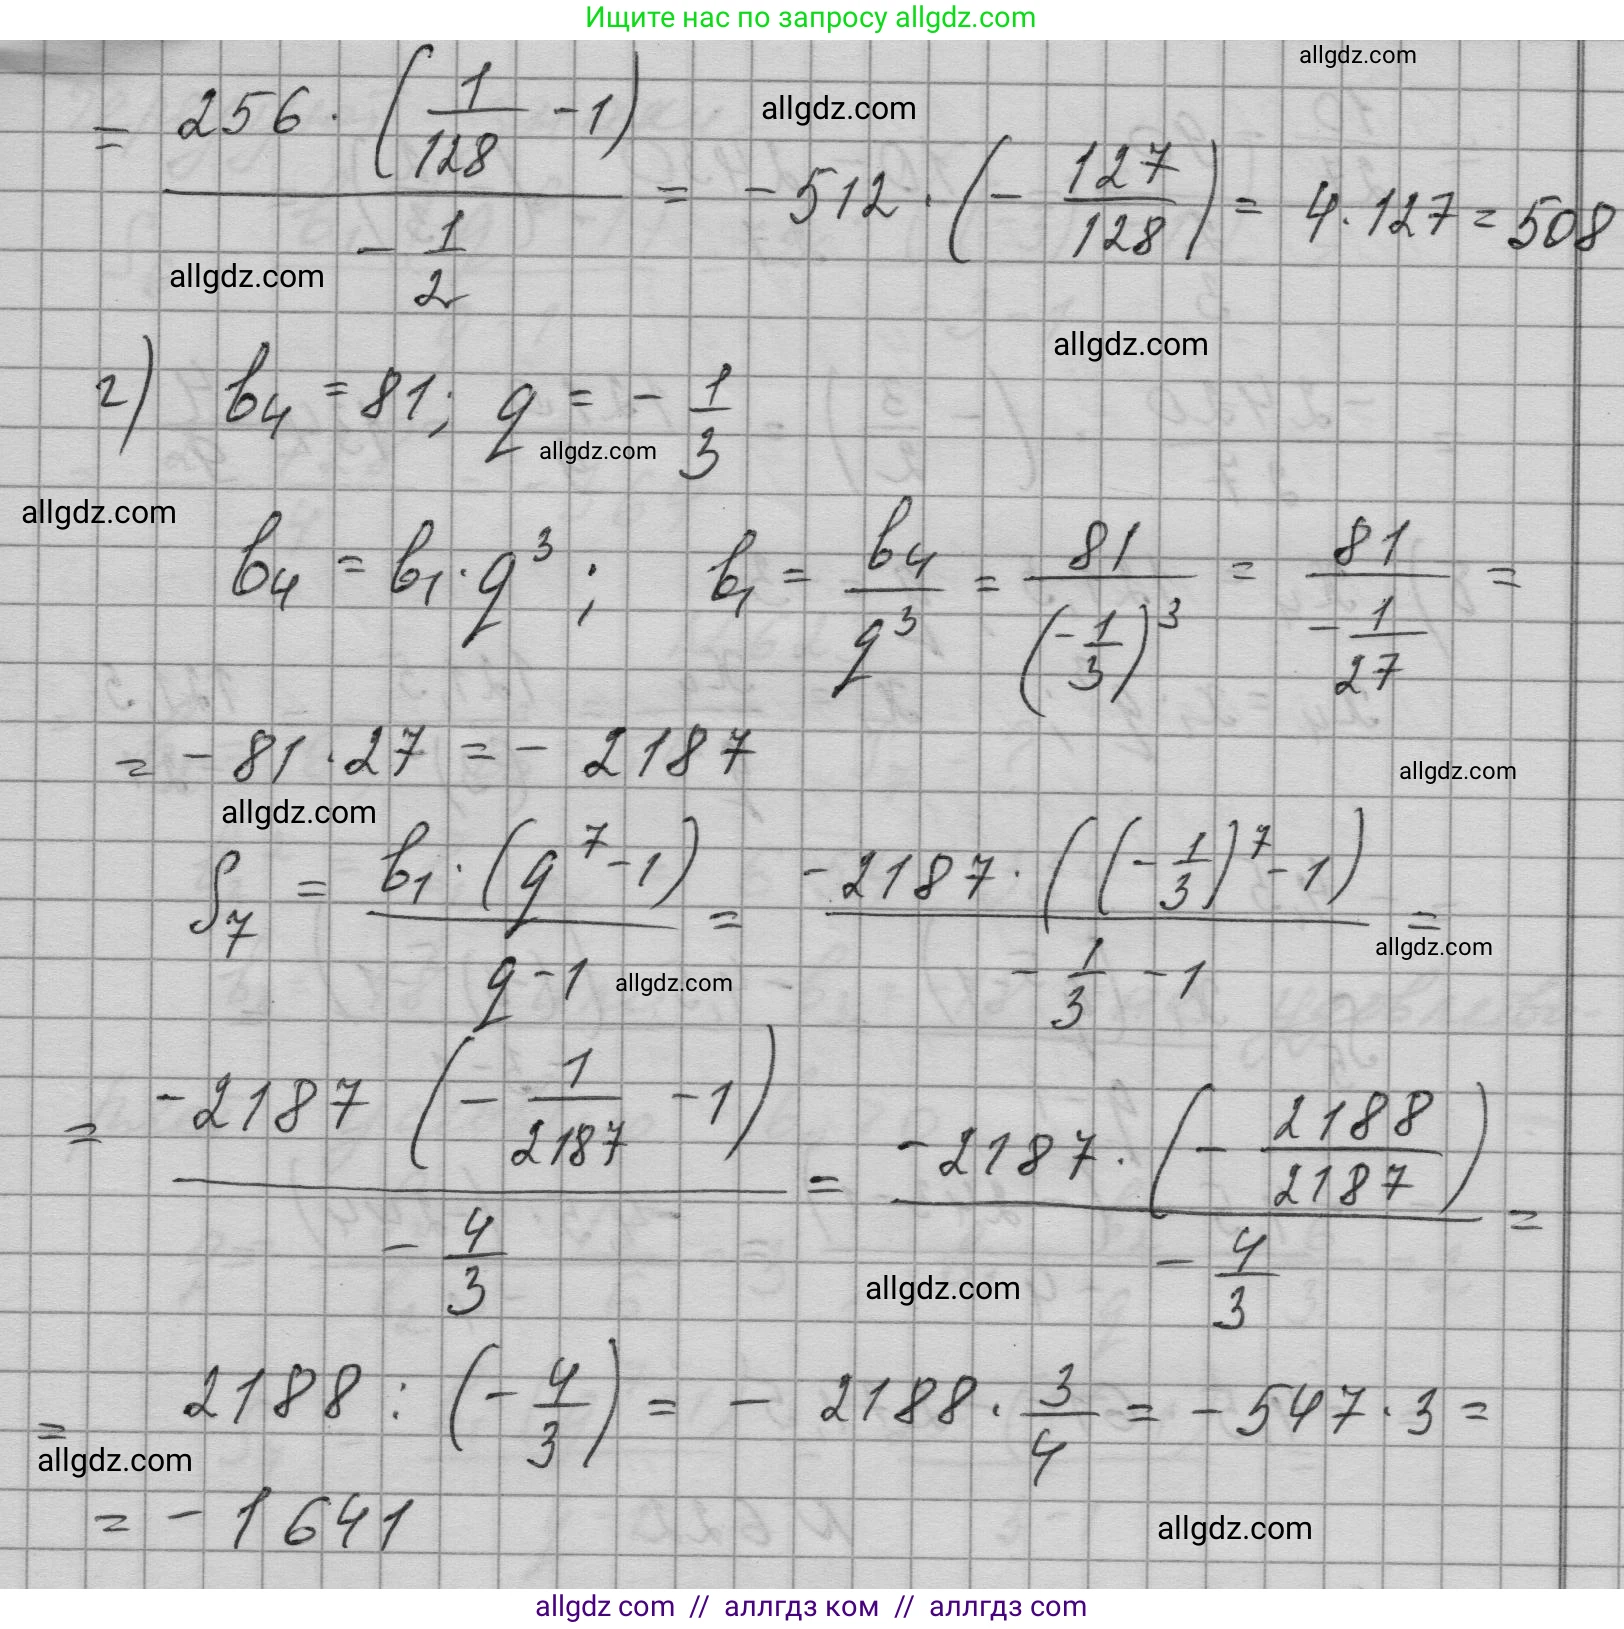 Ищите нас по запросу allgdz.com
allgdz.com
= (256 · (1/128 - 1)) / (- 1/2) = - 512 · (- 127/128) = 4 · 127 = 508
allgdz.com
allgdz.com
allgdz.com
г) b₄ = 81; q = - 1/3
allgdz.com
allgdz.com
b₄ = b₁ · q³ ; b₁ = b₄/q³ = 81/(- 1/3)³ = 81/(- 1/27) =
= - 81 · 27 = - 2187
allgdz.com
allgdz.com
S₇ = (b₁ · (q⁷ - 1))/(q - 1) = (- 2187 · ((- 1/3)⁷ - 1))/(- 1/3 - 1) =
allgdz.com
allgdz.com
= (- 2187 (- 1/2187 - 1))/(- 4/3) = (- 2187 · (- 2188/2187))/(- 4/3) =
allgdz.com
= 2188 : (- 4/3) = - 2188 · 3/4 = - 547 · 3 =
allgdz.com
= - 1641
allgdz.com
allgdz com // аллгдз ком // аллгдз com